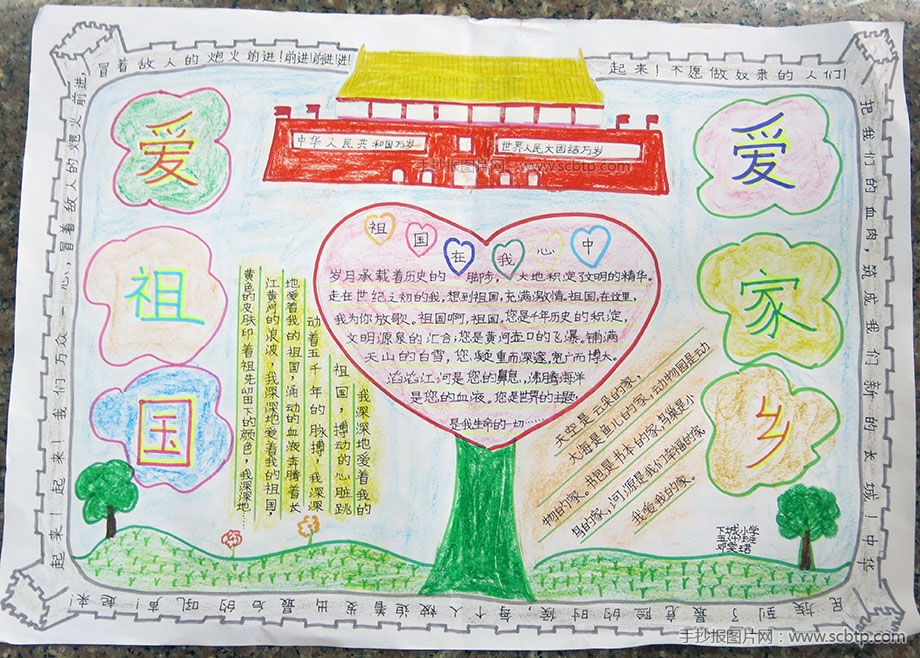 起来！不愿做奴隶的人们！
把我们的血肉，筑成我们新的长城！中华
民族到了最危险的时候，每个人被迫着发出最后的吼声！起来！
起来！起来！我们万众一心，冒着敌人的炮火前进，
冒着敌人的炮火前进！前进！前进！进！
中华人民共和国万岁
世界人民大团结万岁
手抄报图片网：www.scbtp.com
爱
祖
国
爱
家
乡
祖国在我心中
岁月承载着历史的 脚步，大地积淀文明的精华。
走在世纪之初的我，想到祖国，充满激情。祖国，在这里，
我为你放歌。祖国啊，祖国，您是千年历史的积淀，
文明源泉的汇合；您是黄河壶口的飞瀑。铺满
天山的白雪，您凝重而深邃，宽广而博大。
滔滔江河是您的鼻息，沸腾海洋
是您的血液，您是世界的主题，
是我生命的一切……
我深深地爱着我的
祖国，搏动的心脏跳
动着五千年的脉搏，我深深
地爱着我的祖国，涌动的血液奔腾着长
江黄河的浪波，我深深地爱着我的祖国，
黄色的皮肤印着祖先留下的颜色，我深深地……
天空是云朵的家，
大海是鱼儿的家，动物园是动
物的家。书包是书本的家，鸟巢是小
鸟的家，河源是我们幸福的家
我爱我的家。
下城小学
手抄报图片网：www.scbtp.com